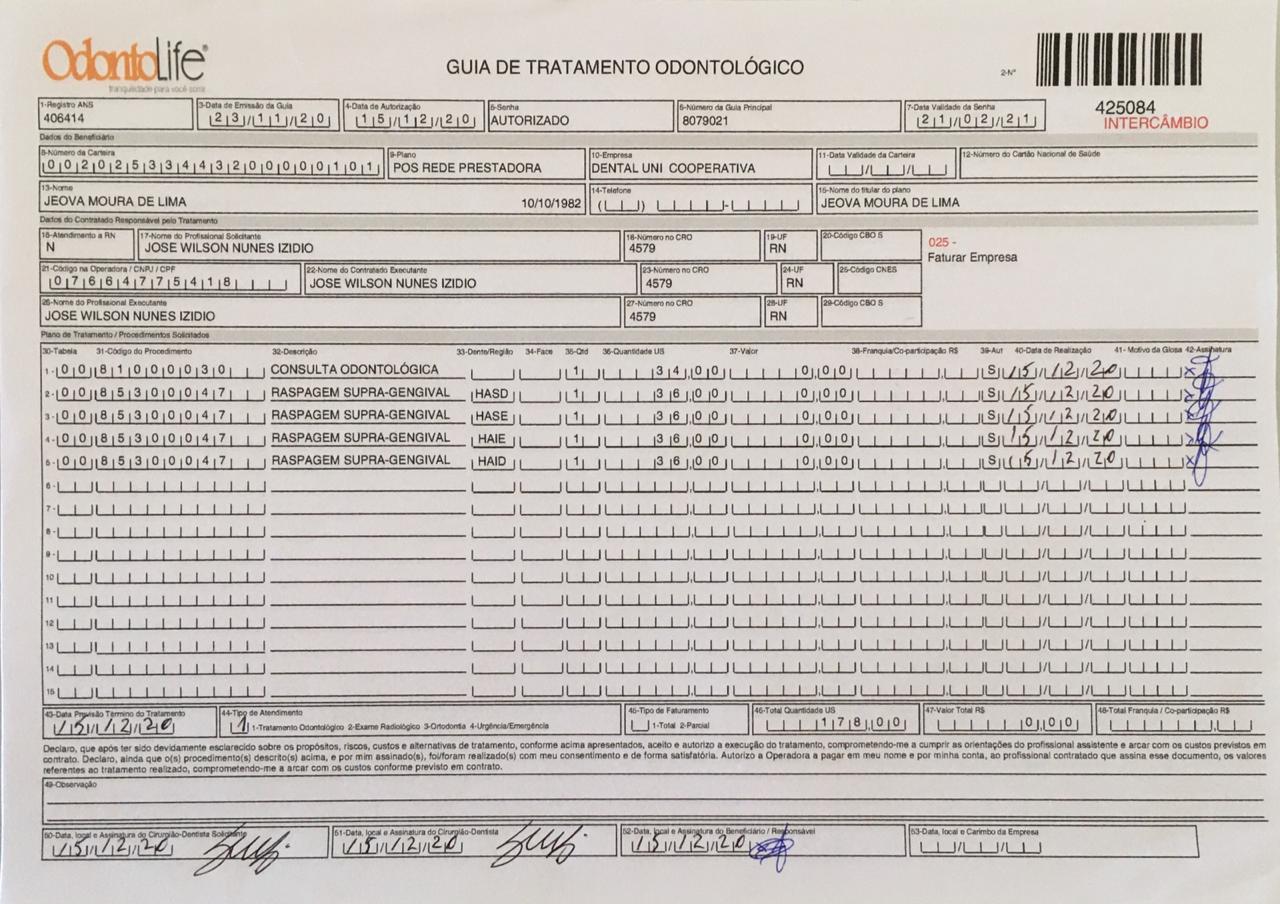 OdontoLife®
tranquilidade para você sorrir
GUIA DE TRATAMENTO ODONTOLÓGICO
2-Nº
425084
INTERCÂMBIO
1-Registro ANS 3-Data de Emissão da Guia 4-Data de Autorização 5-Senha 6-Número da Guia Principal 7-Data Validade da Senha
406414 23/11/20 15/12/20 AUTORIZADO 8079021 21/02/21
Dados do Beneficiário
8-Número da Carteira 9-Plano 10-Empresa 11-Data Validade da Carteira 12-Número do Cartão Nacional de Saúde
00202533443200000101 POS REDE PRESTADORA DENTAL UNI COOPERATIVA
13-Nome 14-Telefone 15-Nome do titular do plano
JEOVA MOURA DE LIMA 10/10/1982 JEOVA MOURA DE LIMA
Dados do Contratado Responsável pelo Tratamento
16-Atendimento a RN 17-Nome do Profissional Solicitante 18-Número no CRO 19-UF 20-Código CBO S
N JOSE WILSON NUNES IZIDIO 4579 RN
025 -
Faturar Empresa
21-Código na Operadora / CNPJ / CPF 22-Nome do Contratado Executante 23-Número no CRO 24-UF 25-Código CNES
07664775418 JOSE WILSON NUNES IZIDIO 4579 RN
26-Nome do Profissional Executante 27-Número no CRO 28-UF 29-Código CBO S
JOSE WILSON NUNES IZIDIO 4579 RN
Plano de Tratamento / Procedimentos Solicitados
30-Tabela 31-Código do Procedimento 32-Descrição 33-Dente/Região 34-Face 35-Qtd 36-Quantidade US 37-Valor 38-Franquia/Co-participação R$ 39-Aut 40-Data de Realização 41- Motivo da Glosa 42-Assinatura
1- 00 81000030 CONSULTA ODONTOLÓGICA 1 34,00 0,00 S 15/12/20 x
2- 00 85300047 RASPAGEM SUPRA-GENGIVAL HASD 1 36,00 0,00 S 15/12/20 x
3- 00 85300047 RASPAGEM SUPRA-GENGIVAL HASE 1 36,00 0,00 S 15/12/20 x
4- 00 85300047 RASPAGEM SUPRA-GENGIVAL HAIE 1 36,00 0,00 S 15/12/20 x
5- 00 85300047 RASPAGEM SUPRA-GENGIVAL HAID 1 36,00 0,00 S 15/12/20 x
6-
7-
8-
9-
10
11
12
13
14
15
43-Data Previsão Término do Tratamento 44-Tipo de Atendimento 45-Tipo de Faturamento 46-Total Quantidade US 47-Valor Total R$ 48-Total Franquia / Co-participação R$
15/12/20 1 1-Tratamento Odontológico 2-Exame Radiológico 3-Ortodontia 4-Urgência/Emergência 1-Total 2-Parcial 178,00 0,00
Declaro, que após ter sido devidamente esclarecido sobre os propósitos, riscos, custos e alternativas de tratamento, conforme acima apresentados, aceito e autorizo a execução do tratamento, comprometendo-me a cumprir as orientações do profissional assistente e arcar com os custos previstos em
contrato. Declaro, ainda que o(s) procedimento(s) descrito(s) acima, e por mim assinado(s), foi/foram realizado(s) com meu consentimento e de forma satisfatória. Autorizo a Operadora a pagar em meu nome e por minha conta, ao profissional contratado que assina esse documento, os valores
referentes ao tratamento realizado, comprometendo-me a arcar com os custos conforme previsto em contrato.
49-Observação
50-Data, local e Assinatura do Cirurgião-Dentista Solicitante 51-Data, local e Assinatura do Cirurgião-Dentista 52-Data, local e Assinatura do Beneficiário / Responsável 53-Data, local e Carimbo da Empresa
15/12/20 15/12/20 15/12/20